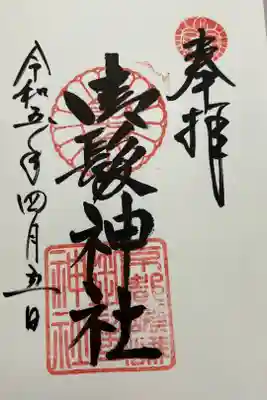 奉拝
御髪神社
令和五年四月五日